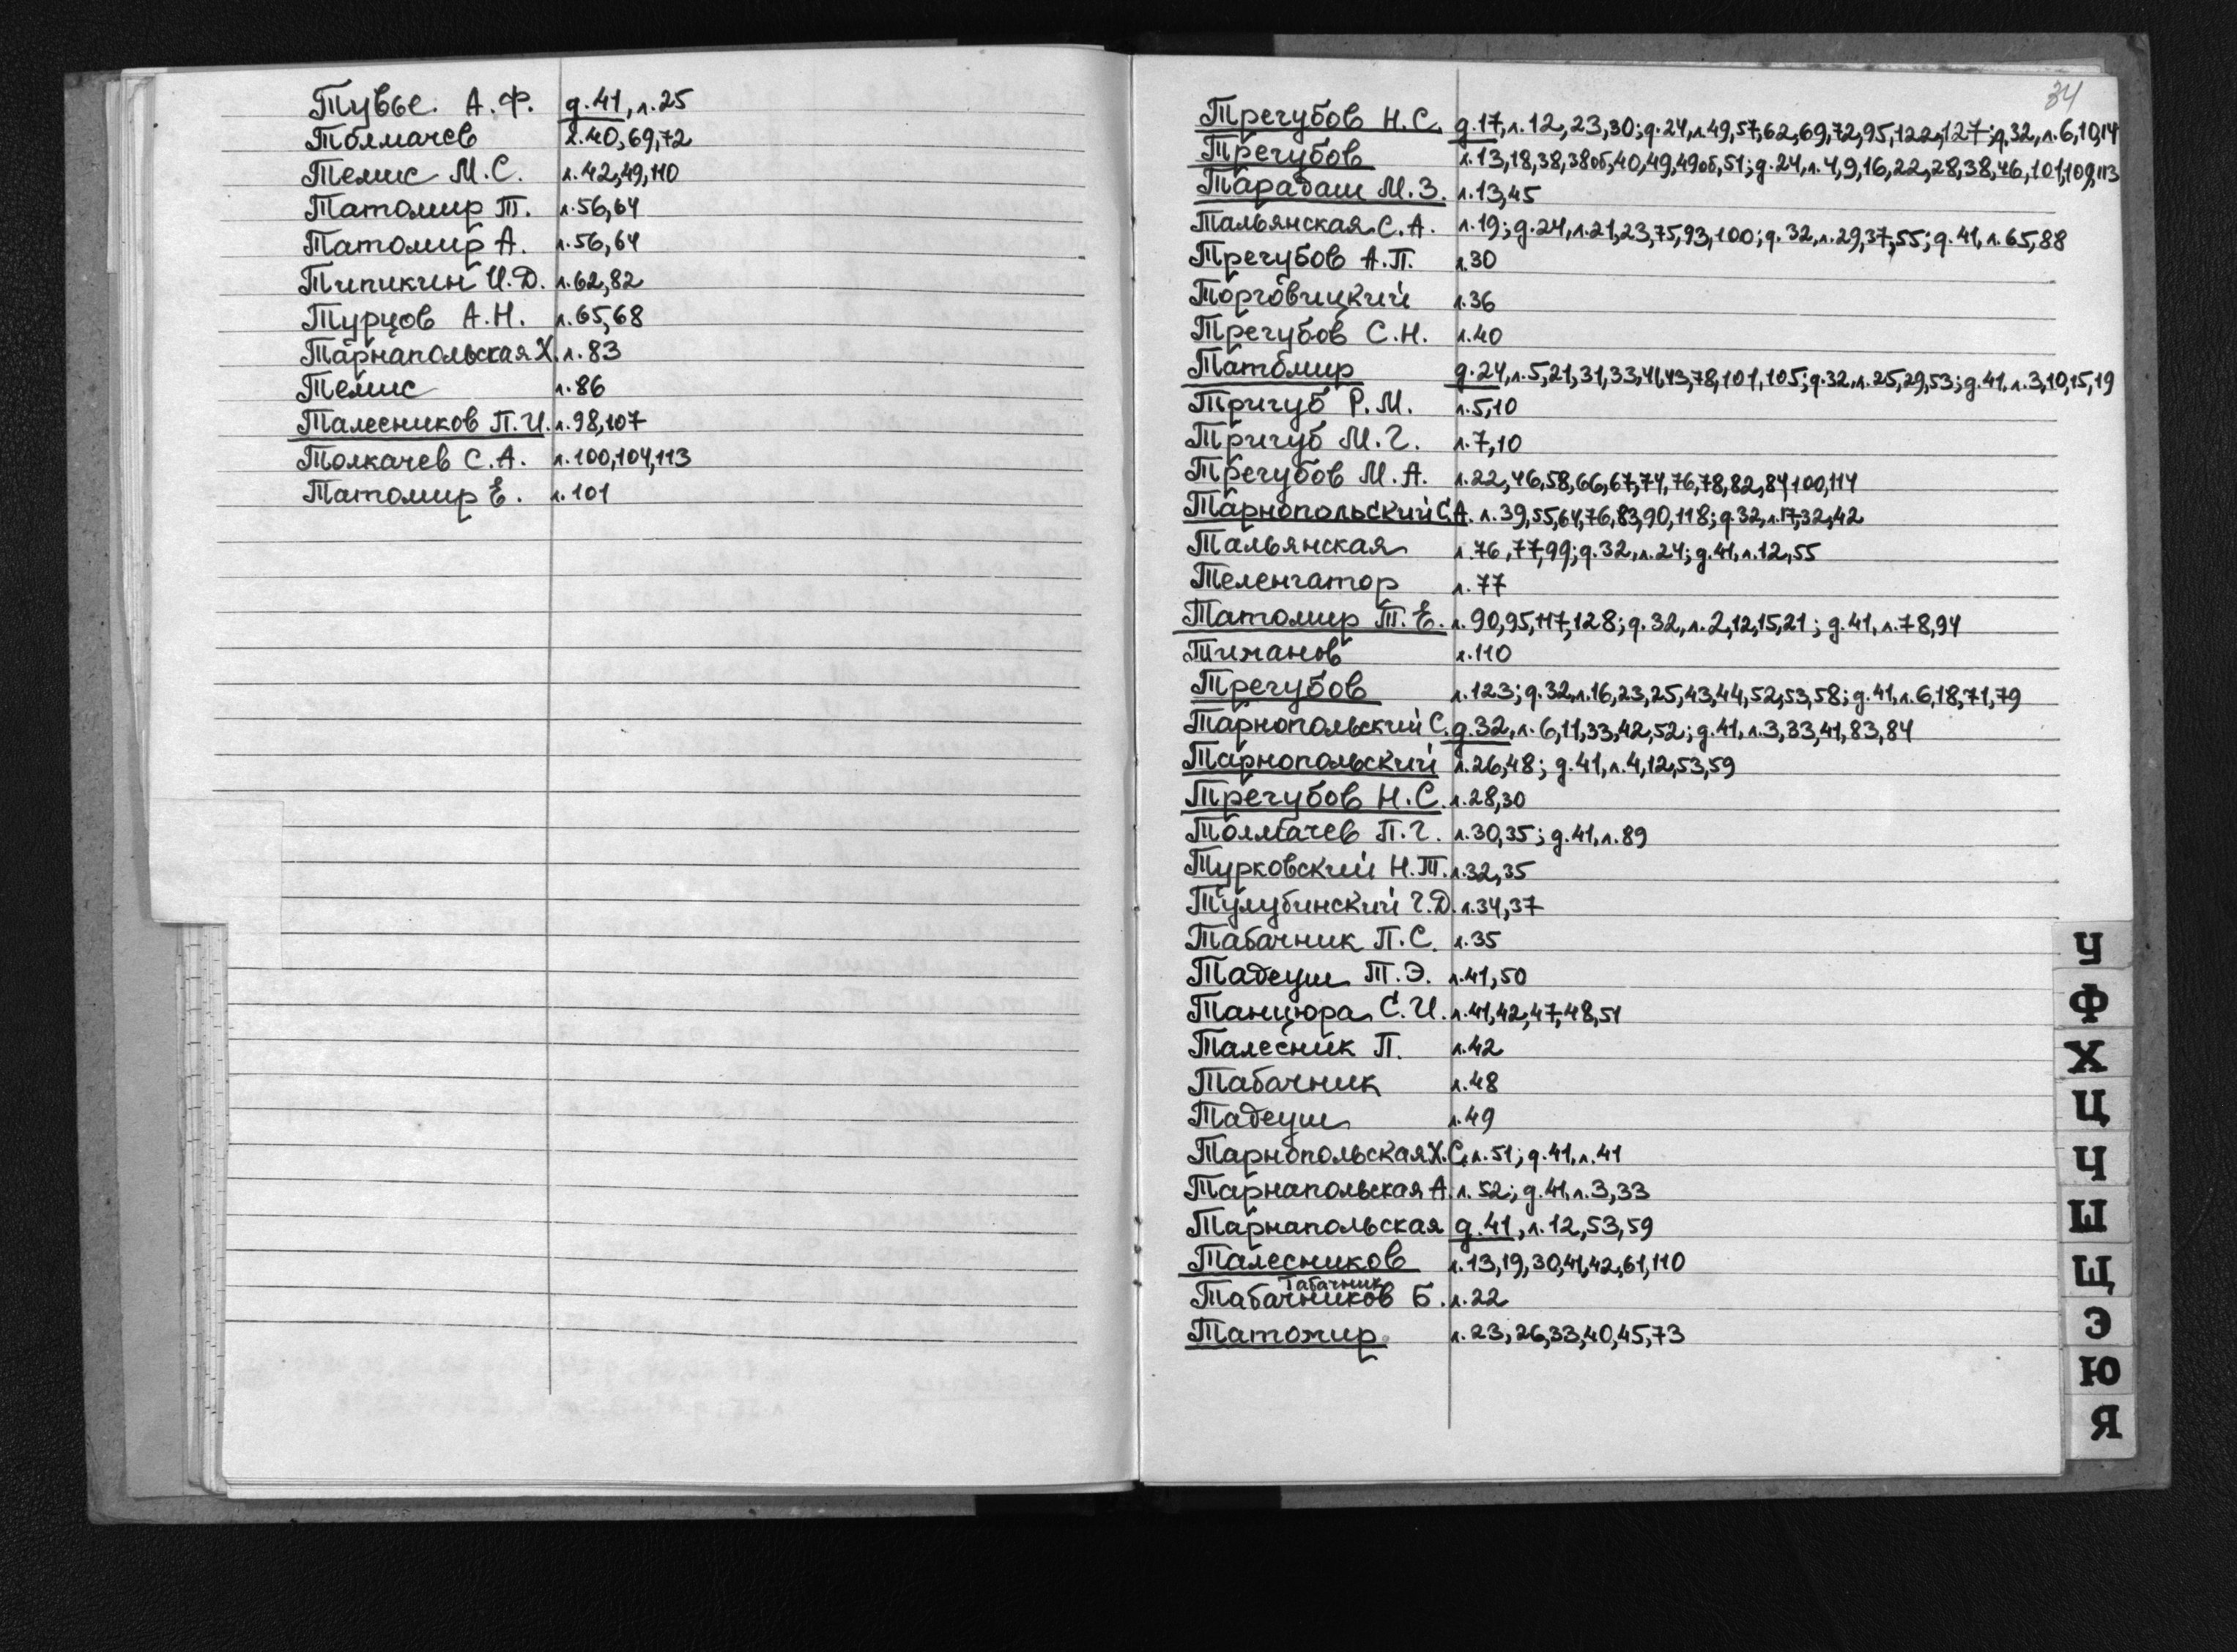 Тувье. А.Ф. д.41, л.25
Толмачев л.40,69,72
Темис М.С. л.42,49,110
Татомир Т. л.56,64
Татомир А. л.56,64
Типикин И.Д. л.62,82
Турцов А.Н. л.65,68
Тарнапольская Х. л.83
Темис л.86
Талесников П.И. л.98,107
Толкачев С.А. л.100,104,113
Татомир Е. л.101
34
Трегубов Н.С. д.17, л.12,23,30; д.24, л.49,57,62,69,72,95,122,127; д.32, л.6,10,14
Трегубов л.13,18,38,38об,40,49,49об,51; д.24, л.4,9,16,22,28,38,46,101,109,113
Тарадаш М.З. л.13,45
Тальянская С.А. л.19; д.24, л.21,23,75,93,100; д.32, л.29,37,55; д.41, л.65,88
Трегубов А.П. л.30
Торговицкий л.36
Трегубов С.Н. л.40
Татомир д.24, л.5,21,31,33,41,43,78,101,105; д.32, л.25,29,53; д.41, л.3,10,15,19
Тригуб Р.М. л.5,10
Тригуб М.Г. л.7,10
Трегубов М.А. л.22,46,58,66,67,74,76,78,82,84,100,114
Тарнопольский С.А. л.39,55,64,76,83,90,118; д.32, л.17,32,42
Тальянская л.76,77,99; д.32, л.24; д.41, л.12,55
Теленгатор л.77
Татомир Т.Е. л.90,95,117,128; д.32, л.2,12,15,21; д.41, л.78,94
Тижанов л.110
Трегубов л.123; д.32, л.16,23,25,43,44,52,53,58; д.41, л.6,18,71,79
Тарнопольский С. д.32, л.6,11,33,42,52; д.41, л.3,33,41,83,84
Тарнопольский л.26,48; д.41, л.4,12,53,59
Трегубов Н.С. л.28,30
Толмачев П.Г. л.30,35; д.41, л.89
Турковский Н.Т. л.32,35
Тулубинский Г.Д. л.34,37
Табачник П.С. л.35
Тадеуш Т.Э. л.41,50
Танцюра С.И. л.41,42,47,48,51
Талесник П. л.42
Табачник л.48
Тадеуш л.49
Тарнопольская Х.С. л.51; д.41, л.41
Тарнапольская А. л.52; д.41, л.3,33
Тарнапольская д.41, л.12,53,59
Талесников л.13,19,30,41,42,61,110
Табачник
Табачников Б. л.22
Татомир л.23,26,33,40,45,73
У
Ф
Х
Ц
Ч
Ш
Щ
Э
Ю
Я